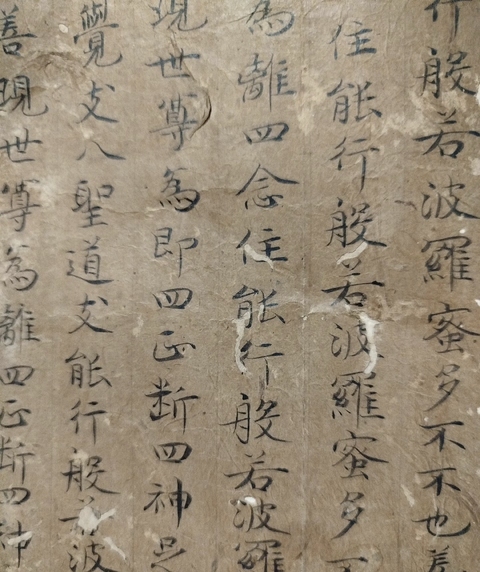 行般若波羅蜜多不不也善
住能行般若波羅蜜多不
為離四念住能行般若波羅
現世尊為即四正断四神足
覺支八聖道支能行般若波
善現世尊為離四正断四神